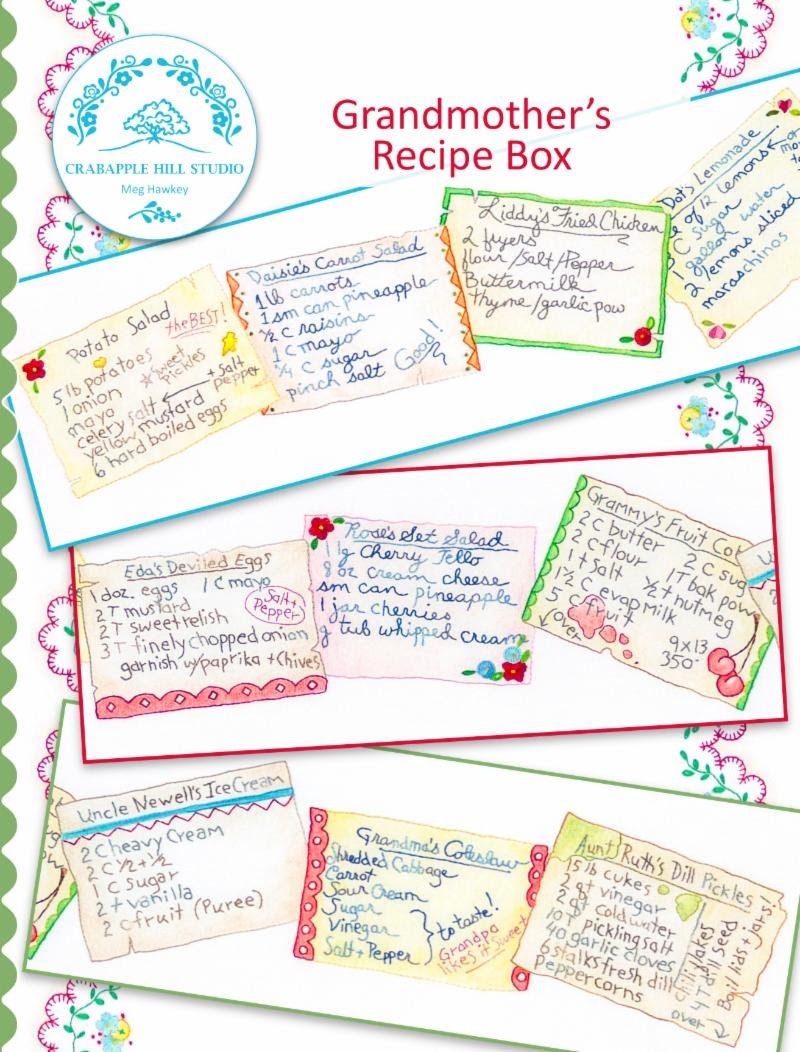 Grandmother's
Recipe Box
CRABAPPLE HILL STUDIO
Meg Hawkey
Potato Salad
the BEST!
5 lb potatoes
1 onion
sweet
pickles
mayo
celery salt
+ salt
pepper
yellow mustard
6 hard boiled eggs
Daisie's Carrot Salad
1 lb carrots
1 sm can pineapple
½ c raisins
1 c mayo
¼ c sugar
pinch salt
Good!
Liddy's Fried Chicken
2 fryers
flour/salt/Pepper
Buttermilk
thyme/garlic pow
Dot's Lemonade
of 12 lemons
or
mo
to
c sugar
1 gallon water
2 lemons sliced
maraschinos
Eda's Deviled Eggs
1 doz. eggs 1 c mayo
2 T mustard
2 T sweet relish
Salt +
Pepper
3 T finely chopped onion
garnish w/paprika + Chives
Rose's Set Salad
1 lg Cherry Jello
8 oz cream cheese
sm can pineapple
1 jar cherries
g tub whipped cream
Grammy's Fruit Co
2 C butter 2 c sug
2 c flour 1 T bak pow
1 t salt ½ t nutmeg
1½ c evap milk
5 c fruit
over
9x13
350°
Uncle Newell's Ice Cream
2 c heavy cream
2 c ½ + ½
1 c sugar
2 t vanilla
2 c fruit (Puree)
Grandma's Coleslaw
Shredded Cabbage
Carrot
Sour Cream
Sugar
Vinegar
Salt + Pepper
to taste!
Grandpa
likes it sweet
Aunt Ruth's Dill Pickles
15 lb cukes
2 qt vinegar
2 qt cold water
10 T pickling salt
40 garlic cloves
6 stalks fresh dill
Peppercorns
chili flakes
4 T dill Seed
Boil lids + jars!
over